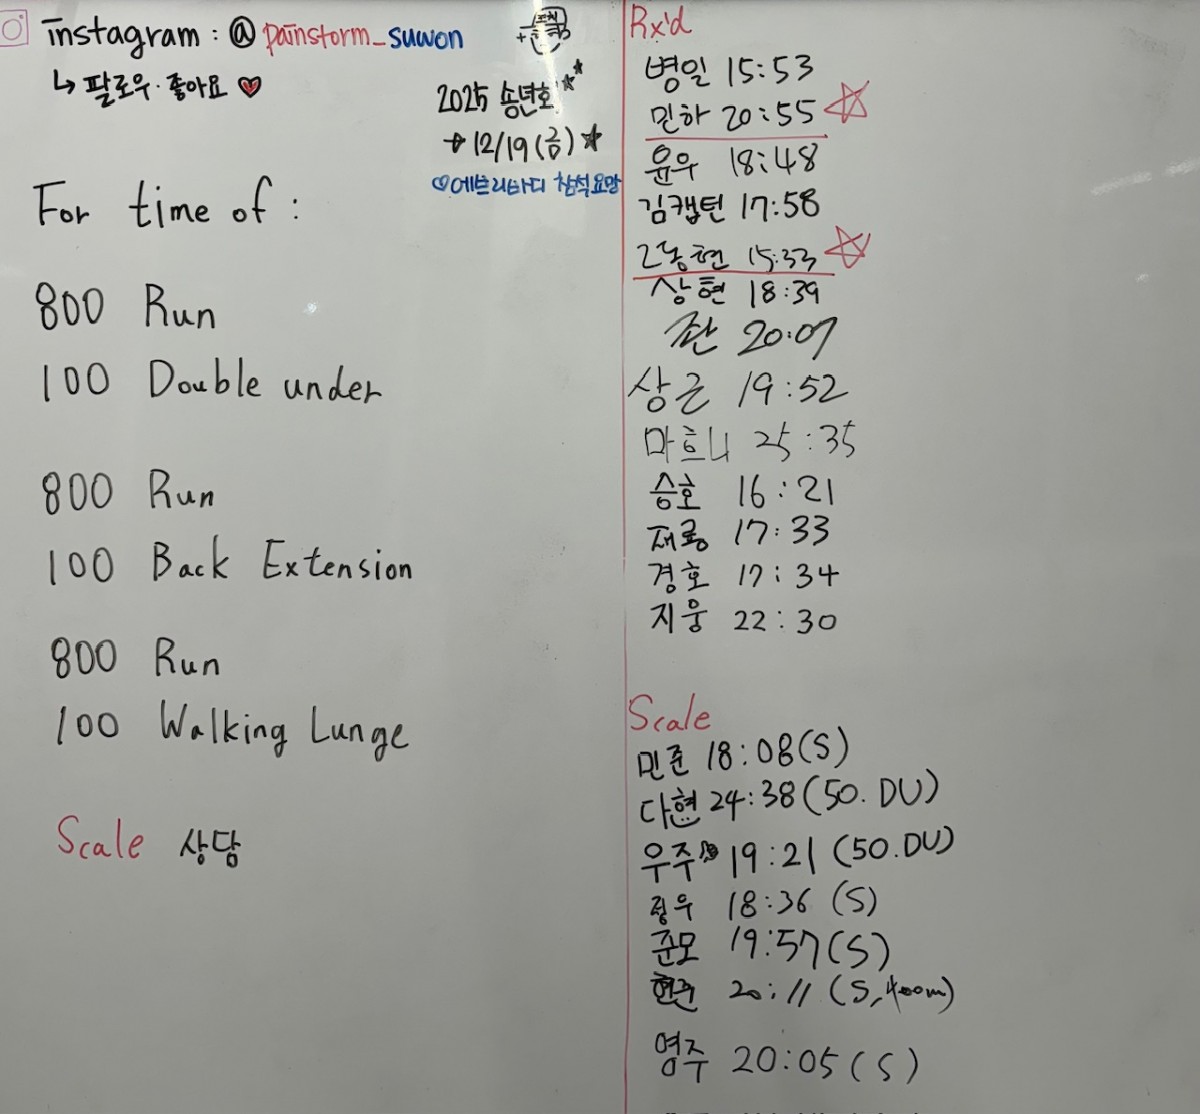 instagram : @ painstorm_suwon
↳ 팔로우·좋아요 ♥
2025 송년회
→ 12/19 (금) ★
♡에브리바디 참석요망
For time of :
800 Run
100 Double under
800 Run
100 Back Extension
800 Run
100 Walking Lunge
Scale 상담
Rx'd
병일 15:53
민하 20:55
윤우 18:48
김캡틴 17:58
15:33
상현 18:39
20:07
상근 19:52
마흐니 25:35
승호 16:21
재룡 17:33
경호 17:34
지웅 22:30
Scale
민준 18:08 (S)
다현 24:38 (50. DU)
우주 19:21 (50.DU)
정우 18:36 (S)
준모 19:57 (S)
현주 20:11 (S, 400m)
영주 20:05 (S)